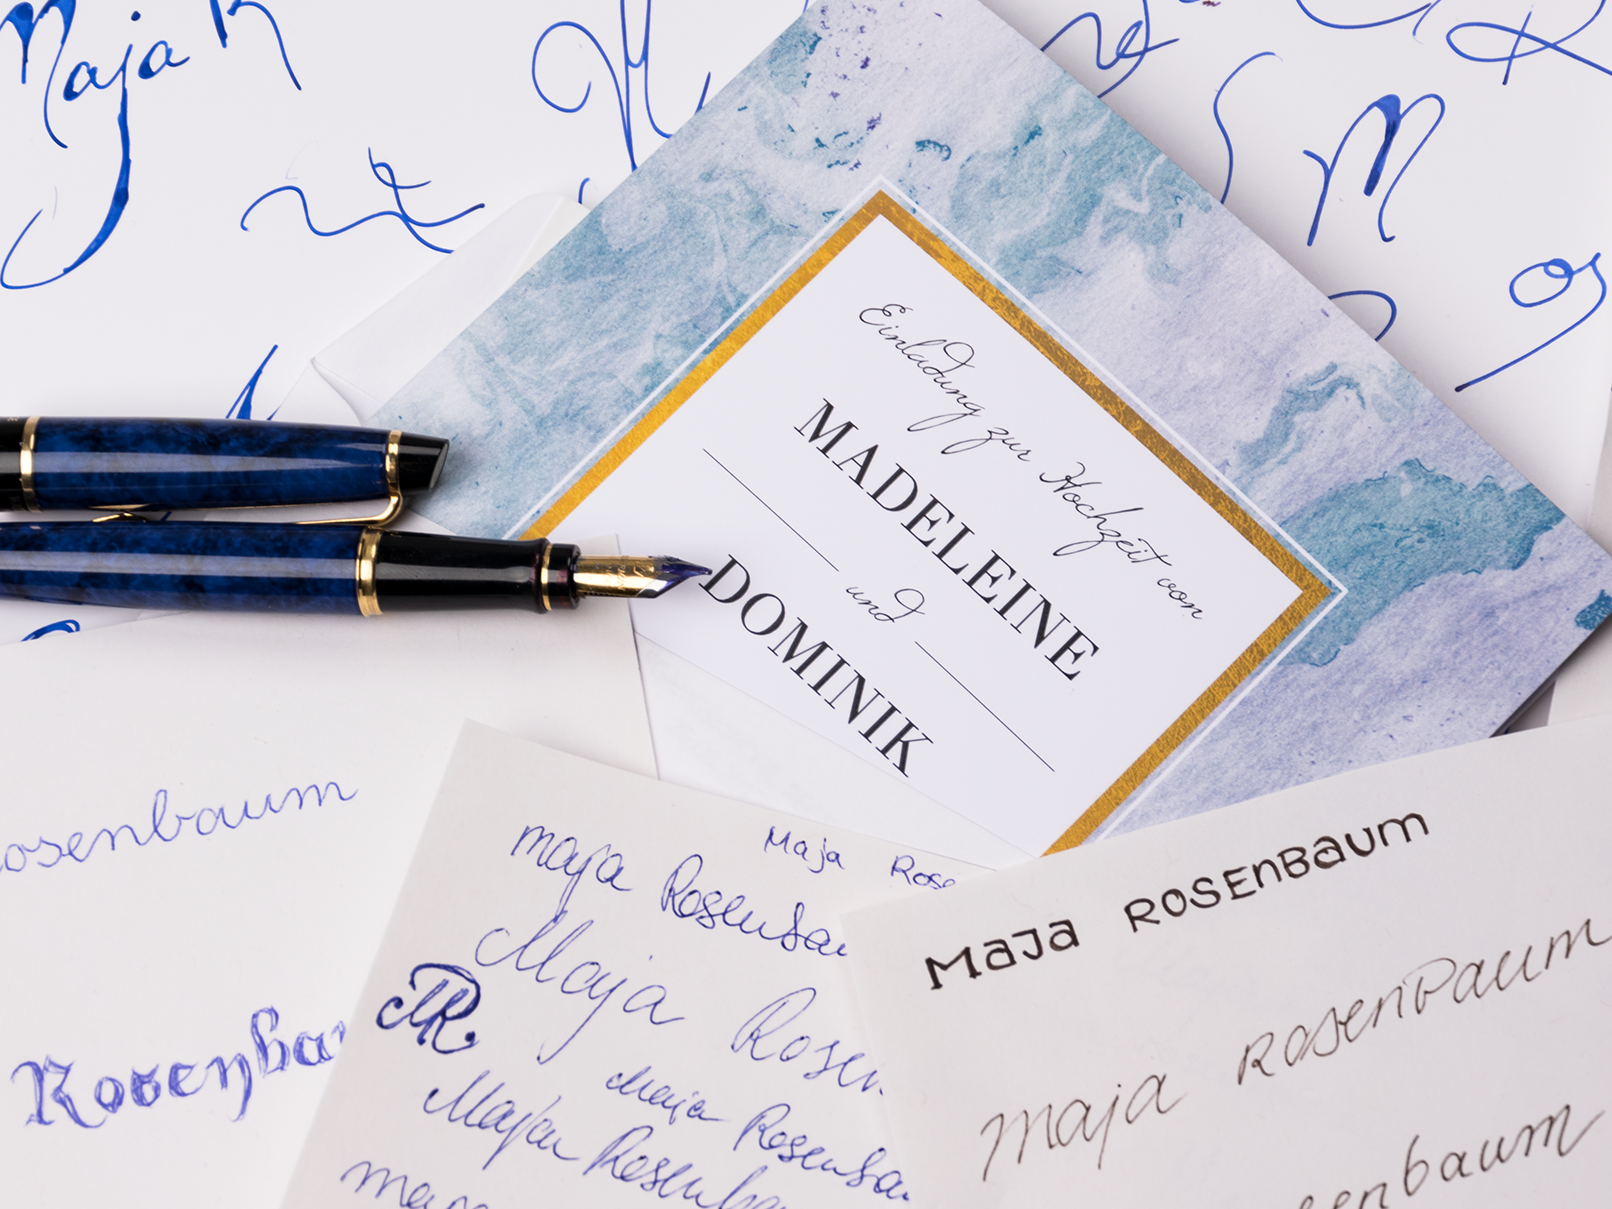 Maja R
M
S
M
Einladung zur Hochzeit von
MADELEINE
und
DOMINIK
osenbaum
Rosenba
maja Rosenbau
Maja Rose
Maja Rosen
MR.
Maja Rosenbau
Maja Rosenba
Maja Rosenbaum
maja Rosenbaum
enbaum